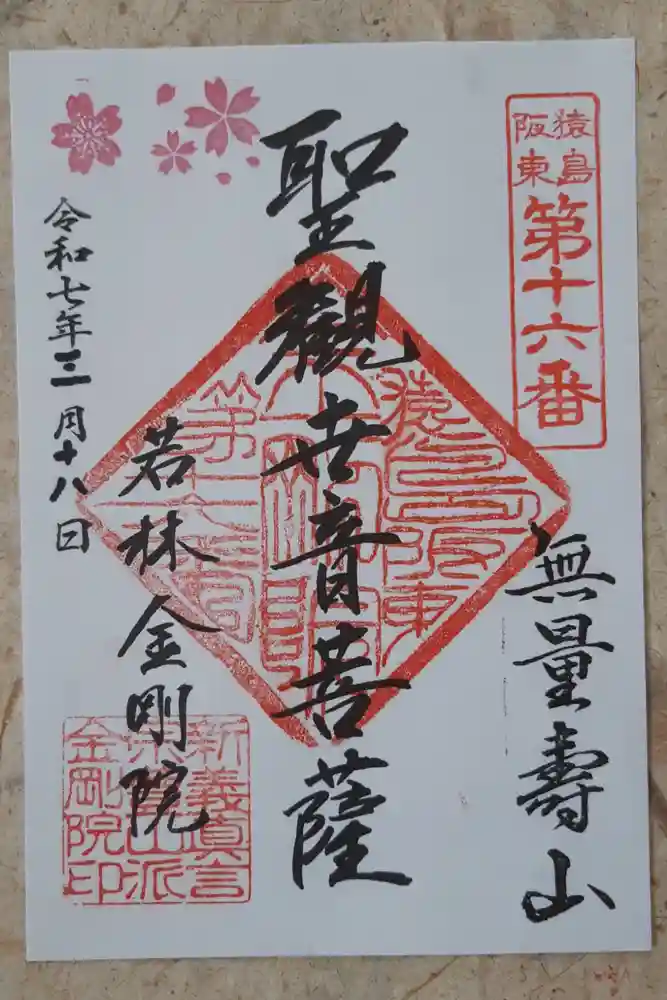 猿島
阪東
第十六番
無量壽山
聖觀世音菩薩
猿島阪東
第十六番
若林金剛院
新義真言
金剛院印
令和七年三月十八日